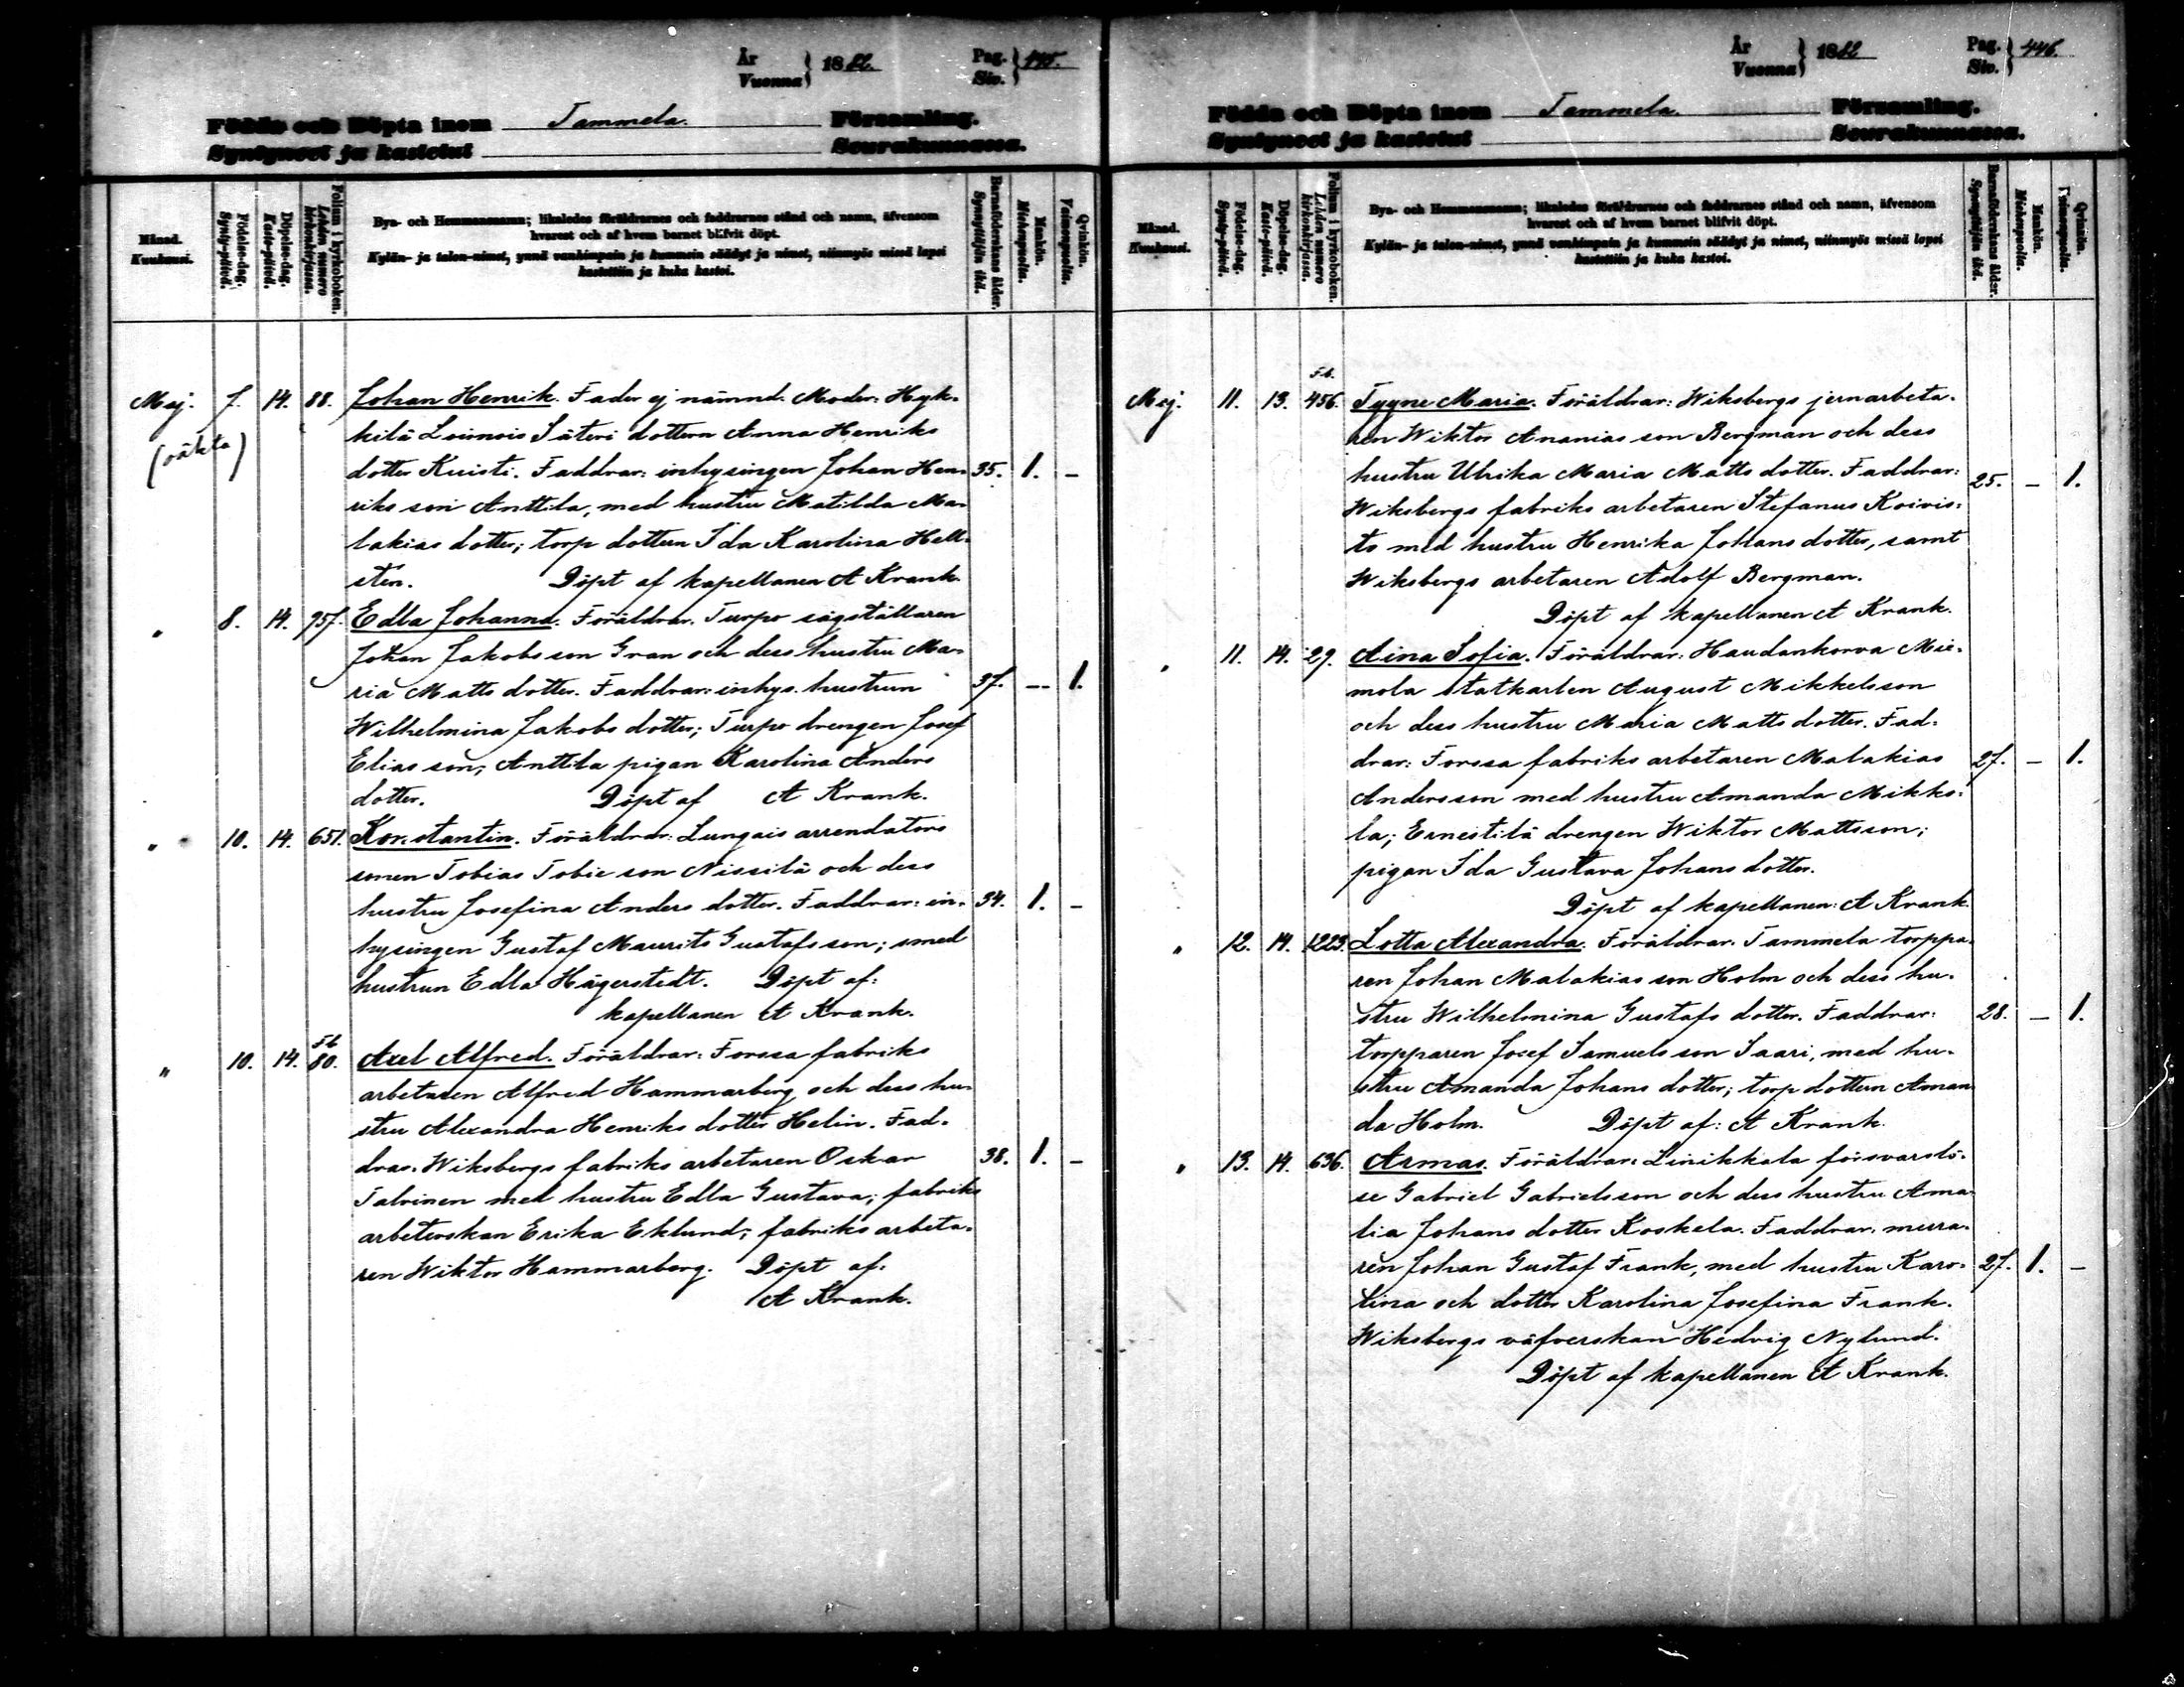 År Vuonna } 1882. Pag. Siv. } 445.
Födda och Döpta inom Tammela. Församling.
Syntyneet ja kastetut Seurakunnassa.
Månad. Kuukausi.
Födelse-dag. Synty-päivä.
Döpelse-dag. Kaste-päivä.
Folium i kyrkoboken. Lehden numero kirkonkirjassa.
Bya- och Hemmansnamn; likaledes föräldrarnes och faddrarnes stånd och namn, äfvensom
hvarest och af hvem barnet blifvit döpt.
Kylän- ja talon-nimet, ynnä vanhimpain ja kummein säädyt ja nimet, niinmyös missä lapsi
kastettiin ja kuka kastoi.
Barnaföderskans ålder. Synnyttäjän ikä.
Mankön. Miehenpuolta.
Qvinkön. Vaimonpuolta.
Maj. 7. 14. 88. Johan Henrik. Fader ej nämnd. Moder: Hyk-
(oäkta) kilä Loimois Säteri dottern Anna Henriks
dotter Kuisti. Faddrar: inhysingen Johan Hen- 35. 1. -
riks son Anttila, med hustru Matilda Ma-
lakias dotter; torp dottern Ida Karolina Hell-
stén. Döpt af kapellanen A Krank.
" 8. 14. 957. Edla Johanna. Föräldrar. Turpo sågställaren
Johan Jakobsson Gran och dess hustru Ma-
ria Matts dotter. Faddrar: inhys. hustrun 37. - 1.
Wilhelmina Jakobs dotter; Turpo drengen Josef
Elias son; Anttila pigan Karolina Anders
dotter. Döpt af A Krank.
" 10. 14. 651. Konstantin. Föräldrar: Lungais arrendators
sonen Tobias Tobie son Nissilä och dess
hustru Josefina Anders dotter. Faddrar: in- 34. 1. -
hysingen Gustaf Maurits Gustafsson; smed
hustrun Edla Hägerstedt. Döpt af:
kapellanen A Krank.
" 10. 14. Fb 80. Axel Alfred. Föräldrar: Forssa fabriks
arbetaren Alfred Hammarberg och dess hu-
stru Alexandra Henriks dotter Helin. Fad-
drar. Wiksbergs fabriks arbetaren Oskar 38. 1. -
Talvinen med hustru Edla Gustava; fabriks
arbeterskan Erika Eklund; fabriks arbeta-
ren Wiktor Hammarberg. Döpt af:
A Krank.
År Vuonna } 1882 Pag. Siv. } 446.
Födda och Döpta inom Tammela. Församling.
Syntyneet ja kastetut Seurakunnassa.
Månad. Kuukausi.
Födelse-dag. Synty-päivä.
Döpelse-dag. Kaste-päivä.
Folium i kyrkoboken. Lehden numero kirkonkirjassa.
Bya- och Hemmansnamn; likaledes föräldrarnes och faddrarnes stånd och namn, äfvensom
hvarest och af hvem barnet blifvit döpt.
Kylän- ja talon-nimet, ynnä vanhimpain ja kummein säädyt ja nimet, niinmyös missä lapsi
kastettiin ja kuka kastoi.
Barnaföderskans ålder. Synnyttäjän ikä.
Mankön. Miehenpuolta.
Qvinkön. Vaimonpuolta.
Maj. 11. 13. Fb. 456. Tyyne Maria. Föräldrar: Wiksbergs jernarbeta-
ren Wiktor Ananias son Bergman och dess
hustru Ulrika Maria Matts dotter. Faddrar: 25. - 1.
Wiksbergs fabriks arbetaren Stefanus Koivis-
to med hustru Henrika Johans dotter, samt
Wiksbergs arbetaren Adolf Bergman.
Döpt af kapellanen A Krank.
" 11. 14. 29. Aina Sofia. Föräldrar: Haudankorva Mie-
mola statkarlen August Mikkelsson
och dess hustru Maria Matts dotter. Fad-
drar: Forssa fabriks arbetaren Malakias 27. - 1.
Andersson med hustru Amanda Mikko-
la; Ernestilä drengen Wiktor Mattsson;
pigan Ida Gustava Johans dotter.
Döpt af kapellanen: A Krank.
" 12. 14. 1223. Lotta Alexandra. Föräldrar. Tammela torppa-
ren Johan Malakias son Holm och dess hu-
stru Wilhelmina Gustafs dotter. Faddrar: 28. - 1.
torpparen Josef Samuels son Saari, med hu-
stru Amanda Johans dotter; torp dottern Aman
da Holm. Döpt af: A Krank.
" 13. 14. 636. Armas. Föräldrar: Linikkala försvarslö-
se Gabriel Gabrielsson och dess hustru Ama-
lia Johans dotter Koskela. Faddrar. murra-
ren Johan Gustaf Frank, med hustru Karo- 27. 1. -
lina och dotter Karolina Josefina Frank.
Wiksbergs väfverskan Hedvig Nylund.
Döpt af kapellanen A Krank.